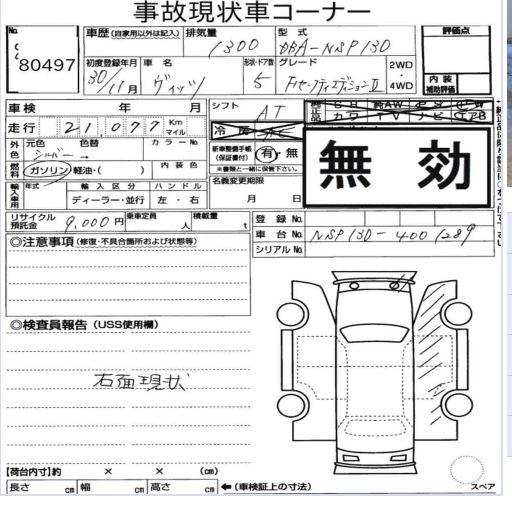 事故現状車コーナー
No. 80497
車歴 (自家用以外は記入) 排気量 1300 型式 DBA-NSP130 評価点
初度登録年月 30/11月 車名 ヴィッツ 形状・ドア数 5 グレード Fセーフティエディション II 2WD・4WD 内装補助評価
車検 年 月 シフト AT
走行 21,077 Km マイル 冷房
外色 元色 シルバー→ 色替 カラーNo 新車整備手帳 (保証書付) 有・無
※書類と一緒に保管して下さい。
燃料 ガソリン 軽油・( ) 内装色 名義変更期限
無効
輸入車用 年式 輸入区分 ハンドル 月 日
ディーラー・並行 左・右
リサイクル預託金 9,000円 乗車定員 人 積載量 t 登録No.
車台No. NSP130-4001289
シリアルNo.
◎注意事項 (修復・不具合箇所および状態等)
◎検査員報告 (USS使用欄)
右面現状
【荷台内寸】約 × × (cm)
長さ cm 幅 cm 高さ cm ←(車検証上の寸法) スペア